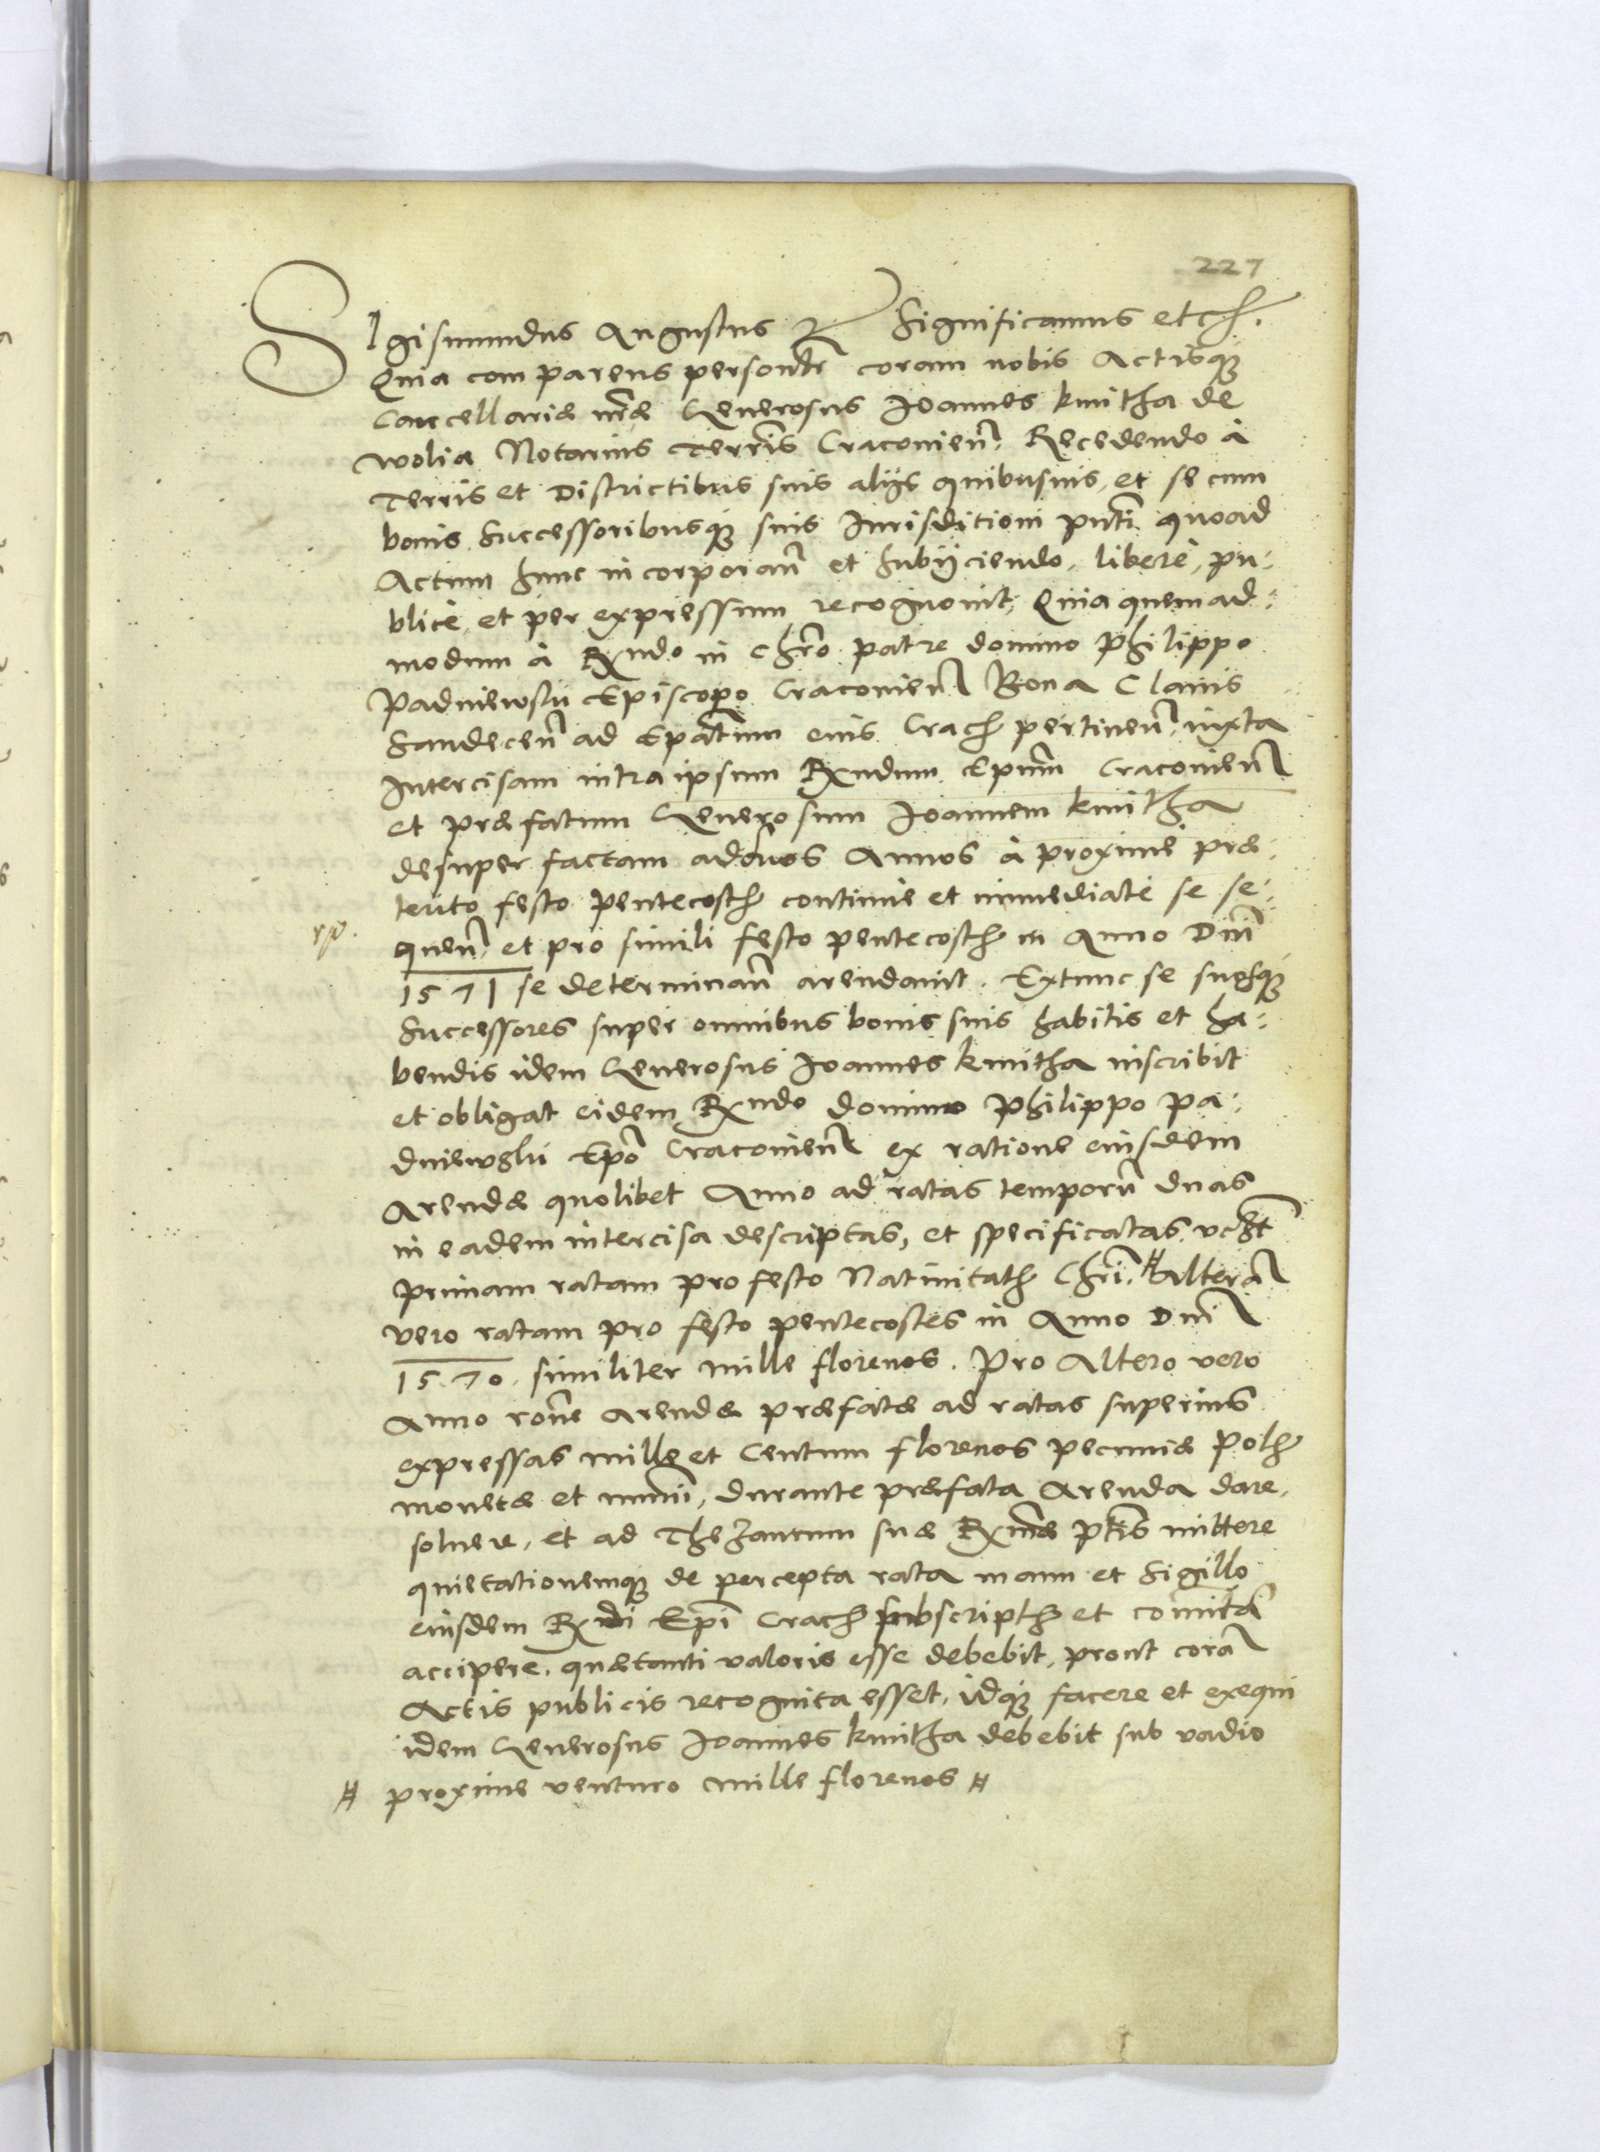 227
SIgismundus Augustus Rex Significamus etcz.
Quia comparens personalr coram nobis Actisqz
Cancellariæ nræ Generosus Joannes kmitha de
wolia Notarius Terrīs Cracovieñ. Recedendo à
Terris et Districtibus suis alijs quibusuis, et se cum
bonis Successoribusqz suis Jurisditioni pñti quoad
Actum hunc incorporañ et Subijciendo, liberè, pu-
blicè et per expressum recognovit, Quia quemad-
modum à Rxndo in Chro patre domino Philippo
Padniewski Episcopo Cracovieñ Bona Clavis
Sandeceñ ad Epatum eius Crach pertineñ, iuxta
Intercisam intra ipsum Rxndum Epum Cracovieñ
et præfatum Generosum Joannem kmitha
desuper factam ad duos Annos à proximè præ-
terito festo Pentecosth continuè et immediatè se se-
queñ, et pro simili festo pentecosth in Anno Dni
1571 se determinañ arendavit. Extunc se suosqz
Successores super omnibus bonis suis habitis et ha-
bendis idem Generosus Joannes kmitha inscribit
et obligat eidem Rxndo domino Philippo Pa-
dniewski Epo Cracovieñ ex ratione eiusdem
Arendæ quolibet Anno ad ratas temporū duas
in eadem intercisa descriptas, et specificatas, vczt
Primam ratam pro festo Nativitath Chri. # Alterā
vero ratam pro festo pentecostes in Anno Dni
1570. similiter mille florenos. Pro Altero vero
Anno rōne Arendæ præfatæ ad ratas superius
expressas mille et Centum florenos pecuniæ Polh
monetæ et nūmi, durante præfata Arenda dare,
solvere, et ad Thezaurum suæ Rxmæ ptis mittere
quietationemqz de percepta rata manu et Sigillo
eiusdem Rxndi Epi Crach subscripth et comitā
accipere. quæ tanti valoris esse debebit, prout corā
Actis publicis recognita esset, idqz facere et exequi
idem Generosus Joannes kmitha debebit sub vadio
# proxime venturo mille florenos #